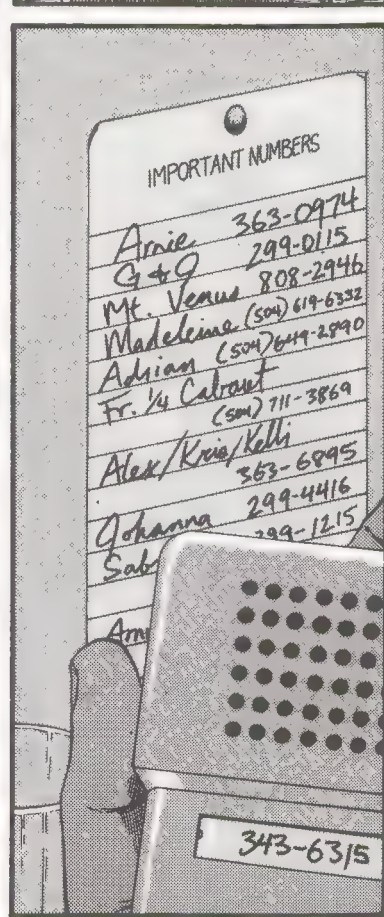 IMPORTANT NUMBERS
Arnie 363-0974
G & O 299-0115
Mt. Venus 808-2946
Madeleine (504) 619-6332
Adrian (504) 649-2890
Fr. 1/4 Cabaret
(504) 711-3869
Alex/Kris/Kelli
363-6895
Johanna 299-4416
Sab 299-1215
Am
343-6315